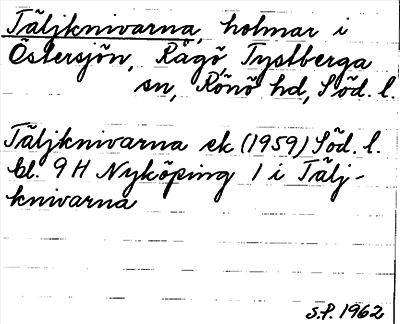 Täljknivarna, holmar i
Östersjön, Rågö, Tystberga
sn, Rönö hd, Söd. l.
Täljknivarna ek (1959) Söd. l.
bl. 9 H Nyköping 1 i Tälj-
knivarna
S.P. 1962